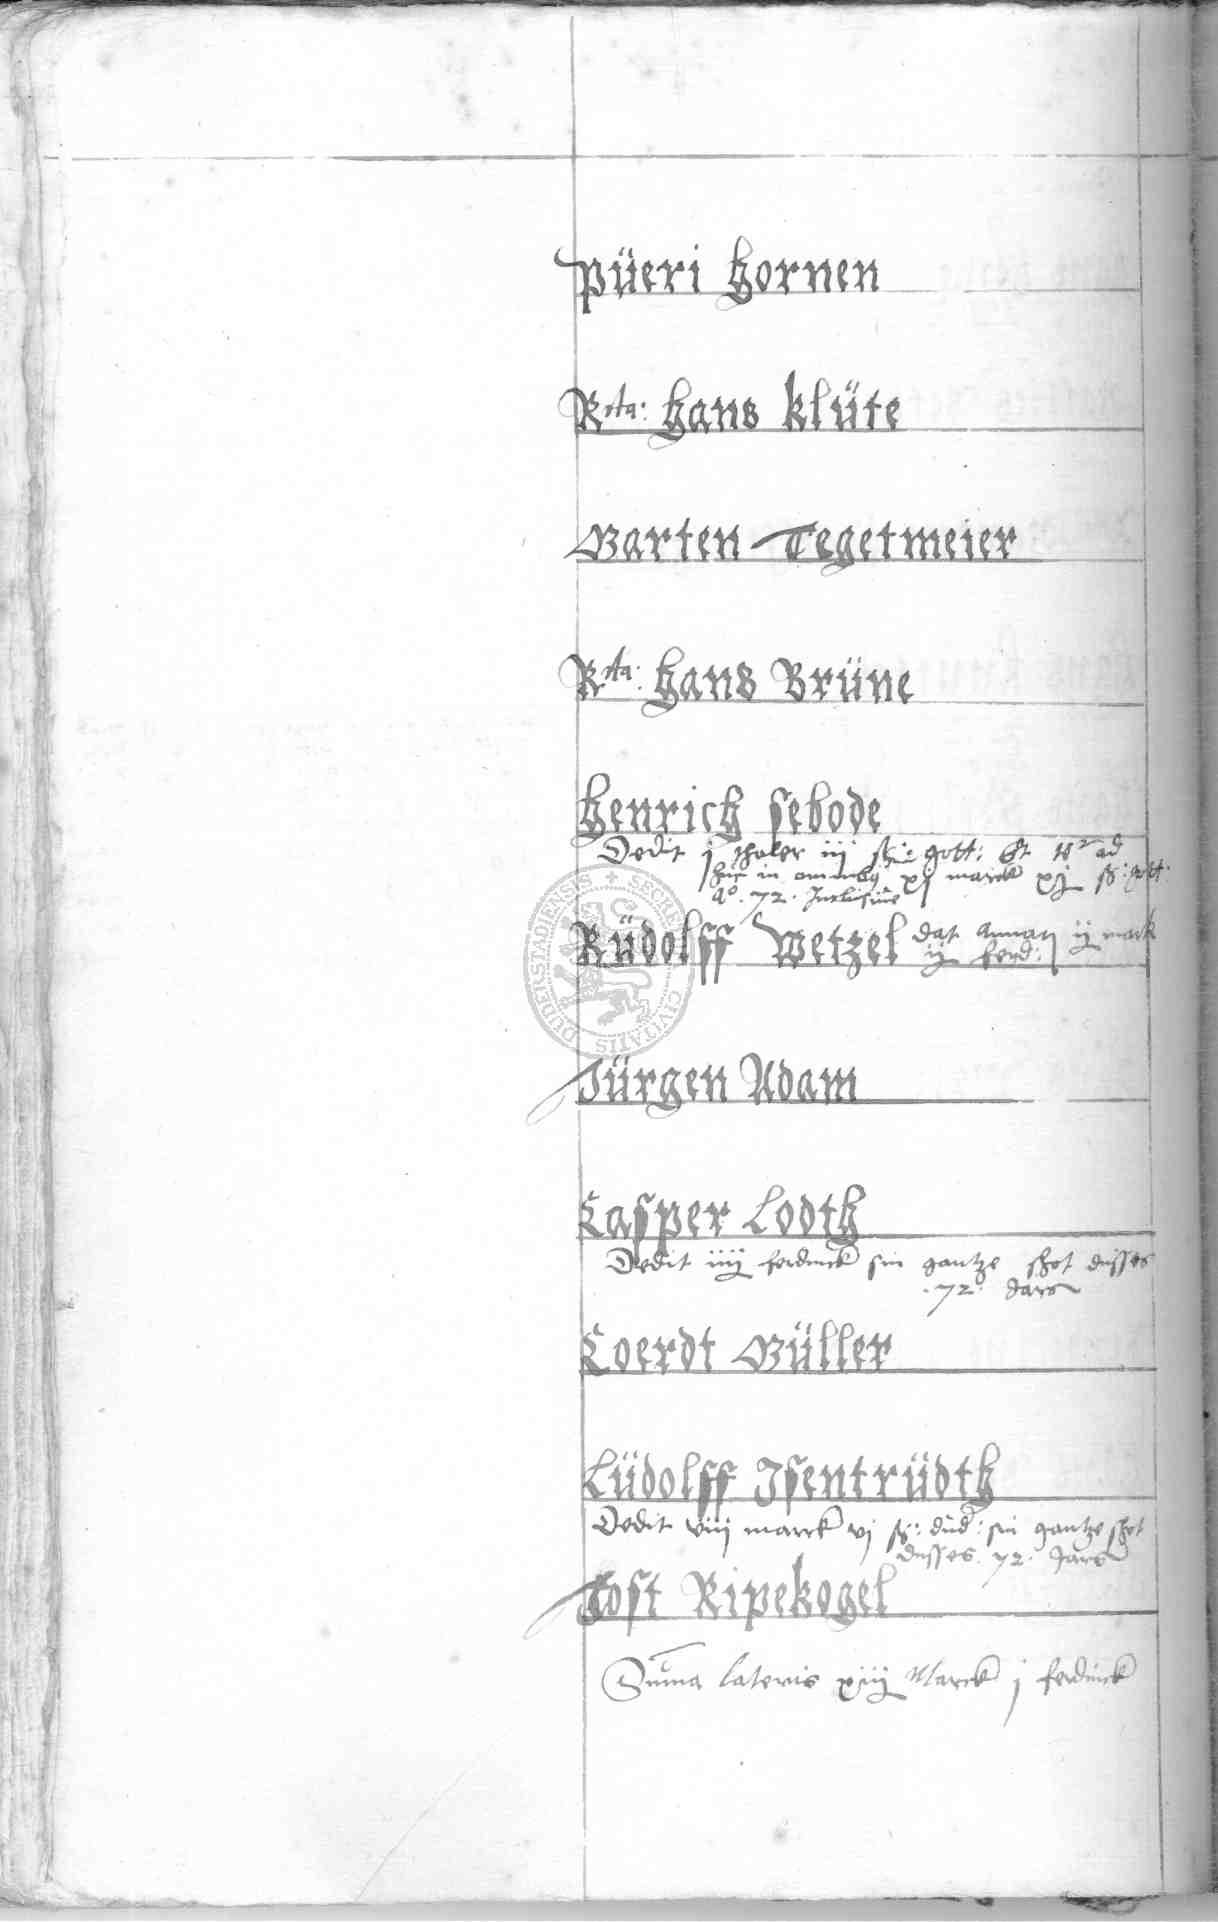 Püeri Hornen
Rcta: Hans Klüte
Marten Tegetmeier
Rcta: Hans Brüne
Henrich Sebode
Dedit j thaler iij ß: gott: Et ad
huc in omnibus xj marck xj ß: gott:
Ao. 72. Inclusive
Rüdolff Wetzel dat Annatj ij mark
ij ferd:
Jürgen Adam
Casper Lodth
Dedit iiij ferdinck sin gantze schot disses
.72. Jars
Coerdt Müller
Lüdolff Isentrüdth
Dedit viij marck vj ß: düd: sin gantze schot
disses .72. Jars
Jost Ripekogel
Suma lateris xiij Marck j ferdinck
SECRET CIVITATIS DUDERSTADIENSIS